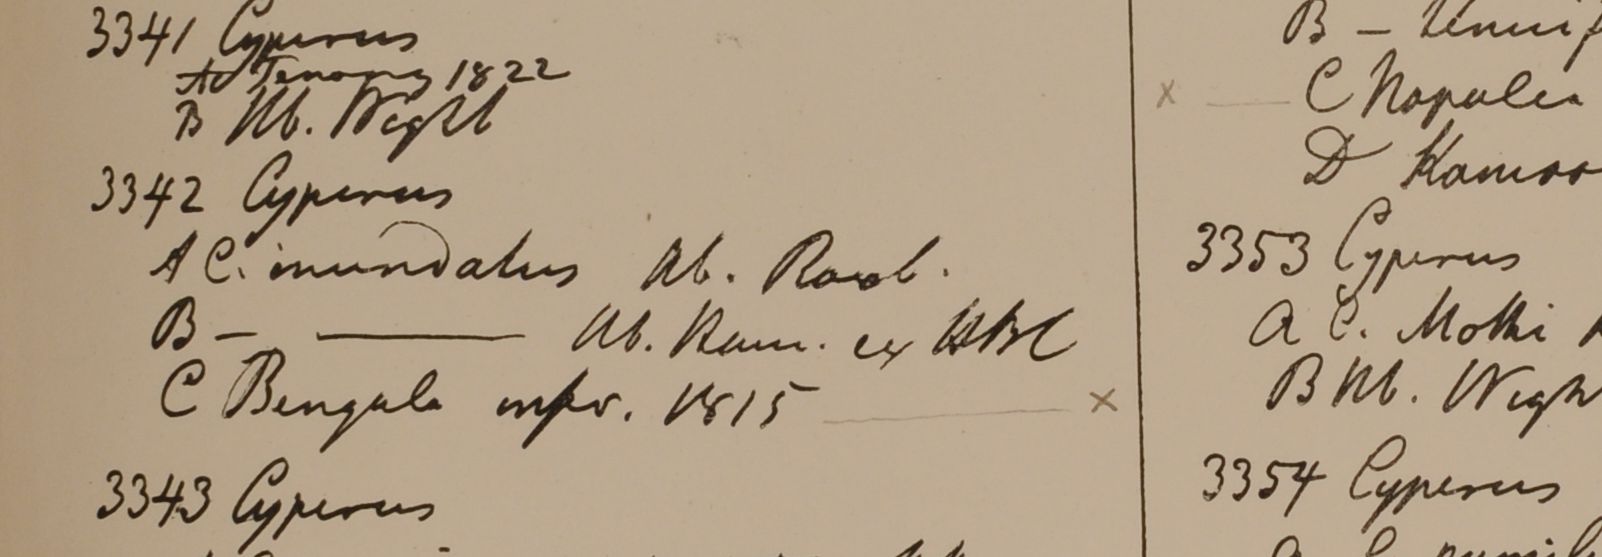 3341 Cyperus
Ad Tenong 1822
B Hb. Wight
3342 Cyperus
A C. inundatus Hb. Roxb.
B — ——— Hb. Ham. ex HBC
C Bengala infr. 1815 ——— x
3343 Cyperus
B —
x —— C Napalia
D
3353 Cyperus
A C.
B Hb. Wigh
3354 Cyperus